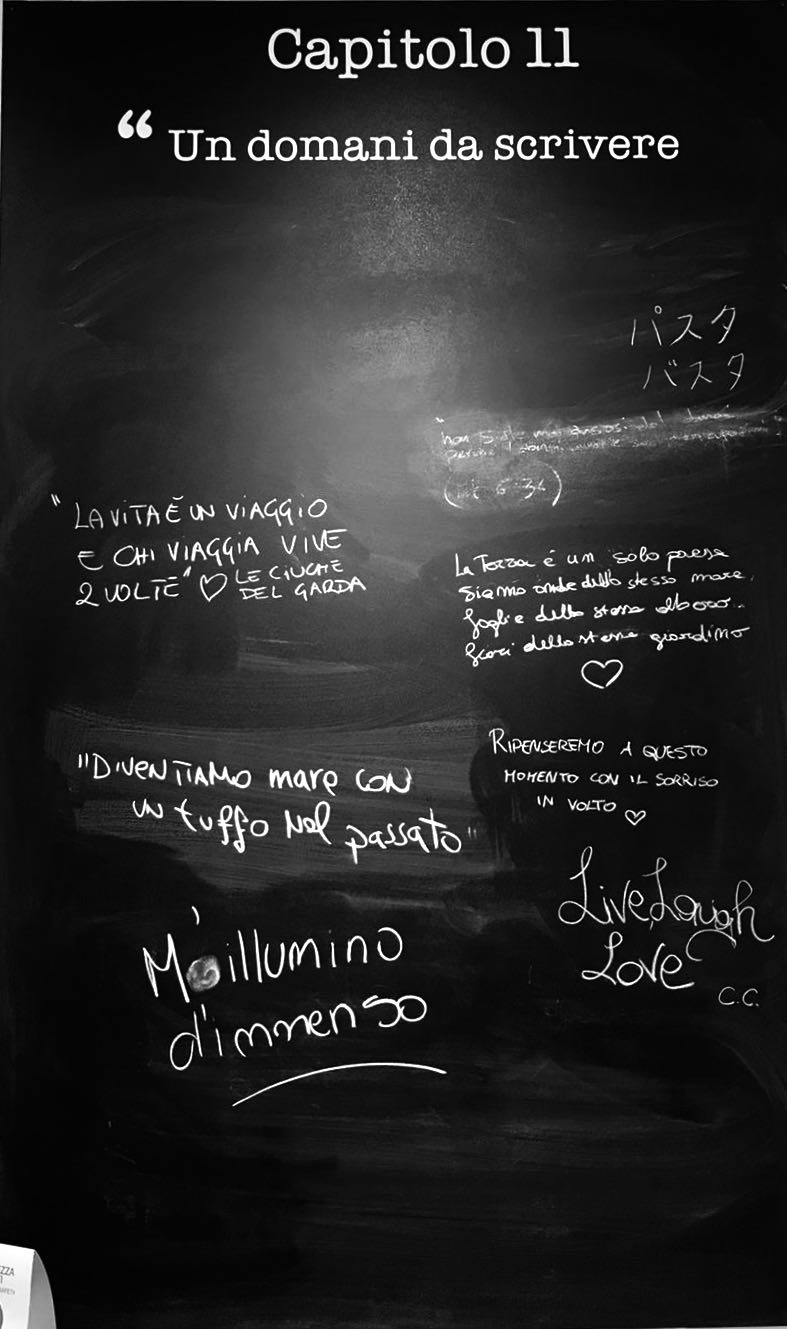 Capitolo 11
“ Un domani da scrivere
パスタ
バスタ
"non
6 34
"LA VITA È UN VIAGGIO
E CHI VIAGGIA VIVE
2 VOLTE" ♡ LE CIUCHE
DEL GARDA
La Terra è un solo paese
Siamo onde dello stesso mare,
foglie dello stesso albero..
fiori dello stesso giardino
♡
"DIVENTIAMO mare CON
UN tuffo Nel passato"
RIPENSEREMO A QUESTO
MOMENTO CON IL SORRISO
IN VOLTO ♡
Live, Laugh
Love
C.C.
M'illumino
d'immenso